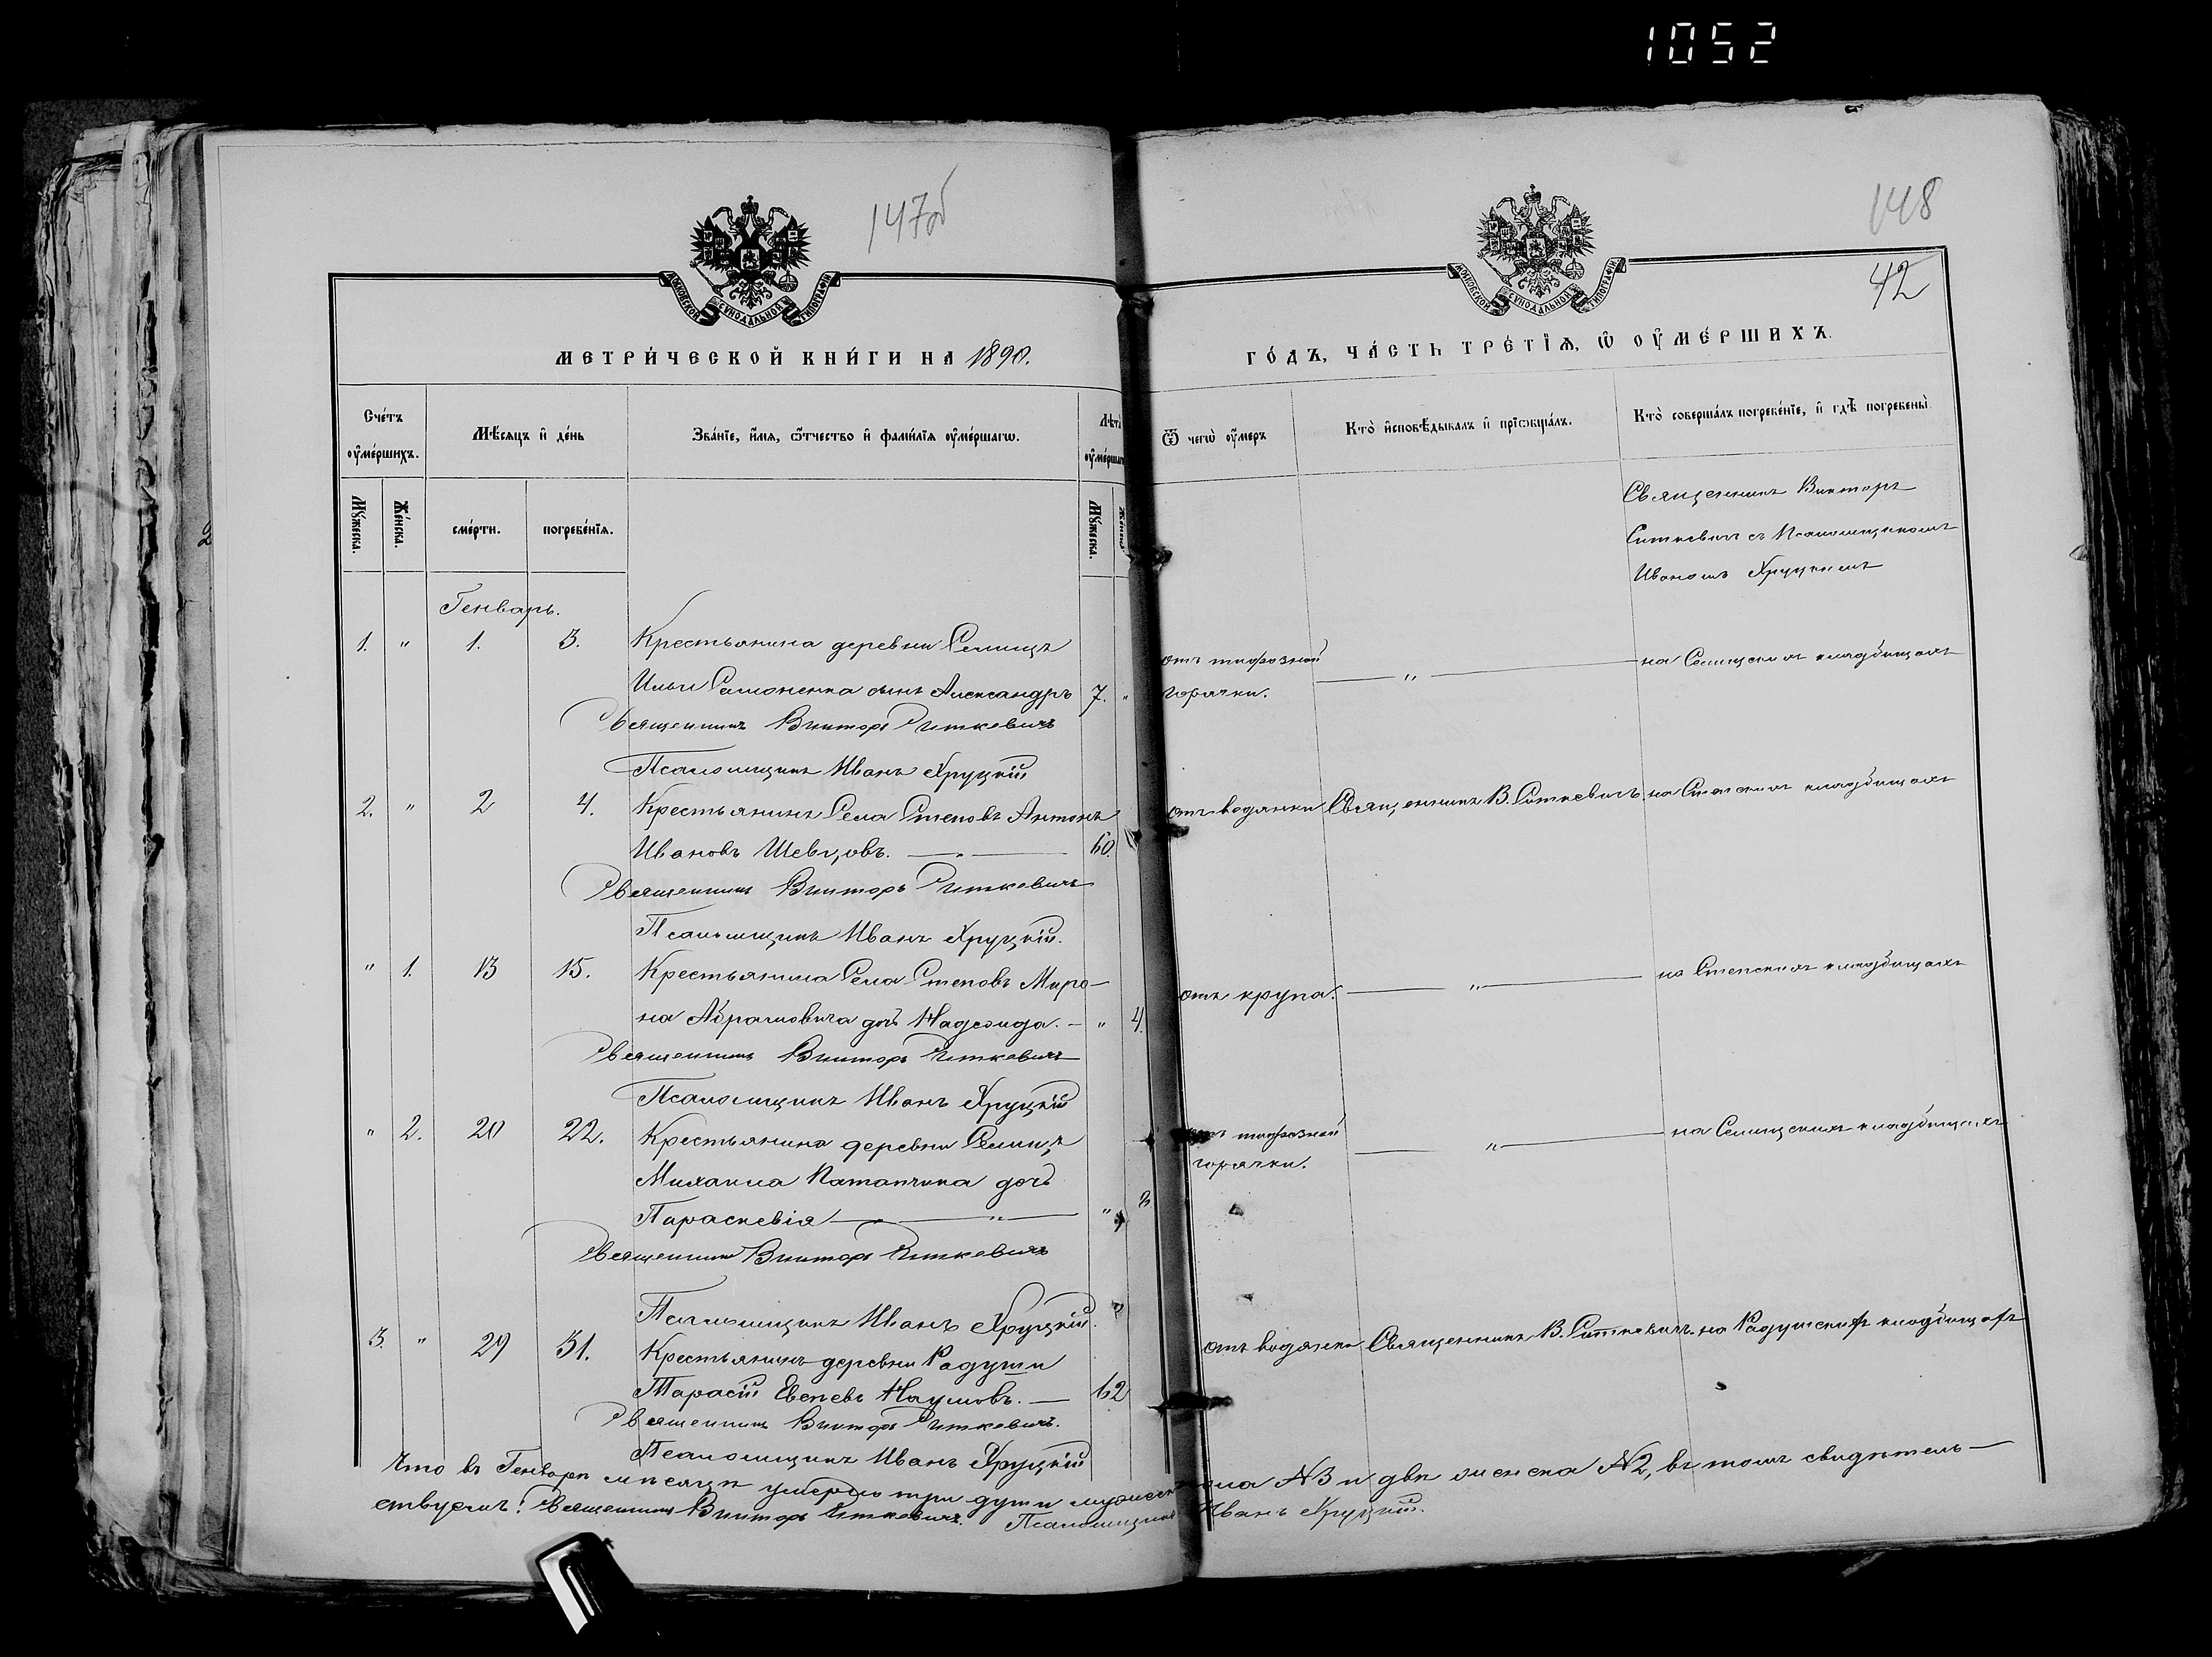 1052
147об
148
42
МОСКОВСКОЙ СѴНОДАЛЬНОЙ ТИПОГРАФІИ
МОСКОВСКОЙ СѴНОДАЛЬНОЙ ТИПОГРАФІИ
МЕТРИ́ЧЕСКОЙ КНИ́ГИ НА 1890.
ГО́ДЪ, ЧА́СТЬ ТРЕ́ТІѦ, Ѡ ОУ҆МЕ́РШИХЪ.
Сче́тъ оу҆ме́ршихъ.
Мѣ́сяцъ и҆ де́нь
Зва́нїе, и҆́мя, ѻ҆́тчество и҆ фами́лїя оу҆ме́ршагѡ.
Лѣта̀ оу҆ме́ршагѡ
Ѿ чегѡ̀ оу҆́меръ
Кто̀ и҆сповѣ́дывалъ и҆ прїѡбща́лъ.
Кто̀ соверша́лъ погребе́нїе, и҆ гдѣ̀ погребены̀.
Мꙋ́жеска.
Же́нска.
сме́рти.
погребе́нїя.
Мꙋ́жеска.
Же́нска.
Священникъ Викторъ
Ситкевичъ съ Псаломщикомъ
Иваномъ Хруцкимъ
Генварь.
1. " 1. 3. Крестьянина деревни Селищъ
Ильи Самоненка сынъ Александръ 7. " отъ тифозной горячки. — " — на Селищскихъ кладбищахъ
Священникъ Викторъ Ситкевичъ
Псаломщикъ Иванъ Хруцкій
2. " 2 4. Крестьянинъ Села Степовъ Антонъ
Ивановъ Шевцовъ. — " — 60. отъ водянки Священникъ В. Ситкевичъ. на кладбищахъ
Священникъ Викторъ Ситкевичъ
Псаломщикъ Иванъ Хруцкій.
" 1. 13 15. Крестьянина Села Степовъ Миро-
на Абрамовича дочь Надежда. — " 4. отъ крупа. — " — на Степскихъ кладбищахъ
Священникъ Викторъ Ситкевичъ
Псаломщикъ Иванъ Хруцкій
" 2. 20 22. Крестьянина деревни Селищъ
Михаила дочь
Параскевія — " — " отъ тифозной горячки. — " — на Селищскихъ кладбищахъ
Священникъ Викторъ Ситкевичъ
Псаломщикъ Иванъ Хруцкій.
3. " 29 31. Крестьянинъ деревни Радути
Тарасій Наумовъ. — 62 отъ водянки Священникъ В. Ситкевичъ. на кладбищахъ
Священникъ Викторъ Ситкевичъ.
Псаломщикъ Иванъ Хруцкій
Что въ Генварѣ мѣсяцѣ умерло три души мужеска пола №3 и двѣ женска №2, въ томъ свидѣтель-
ствуемъ: Священникъ Викторъ Ситкевичъ. Псаломщикъ Иванъ Хруцкій.